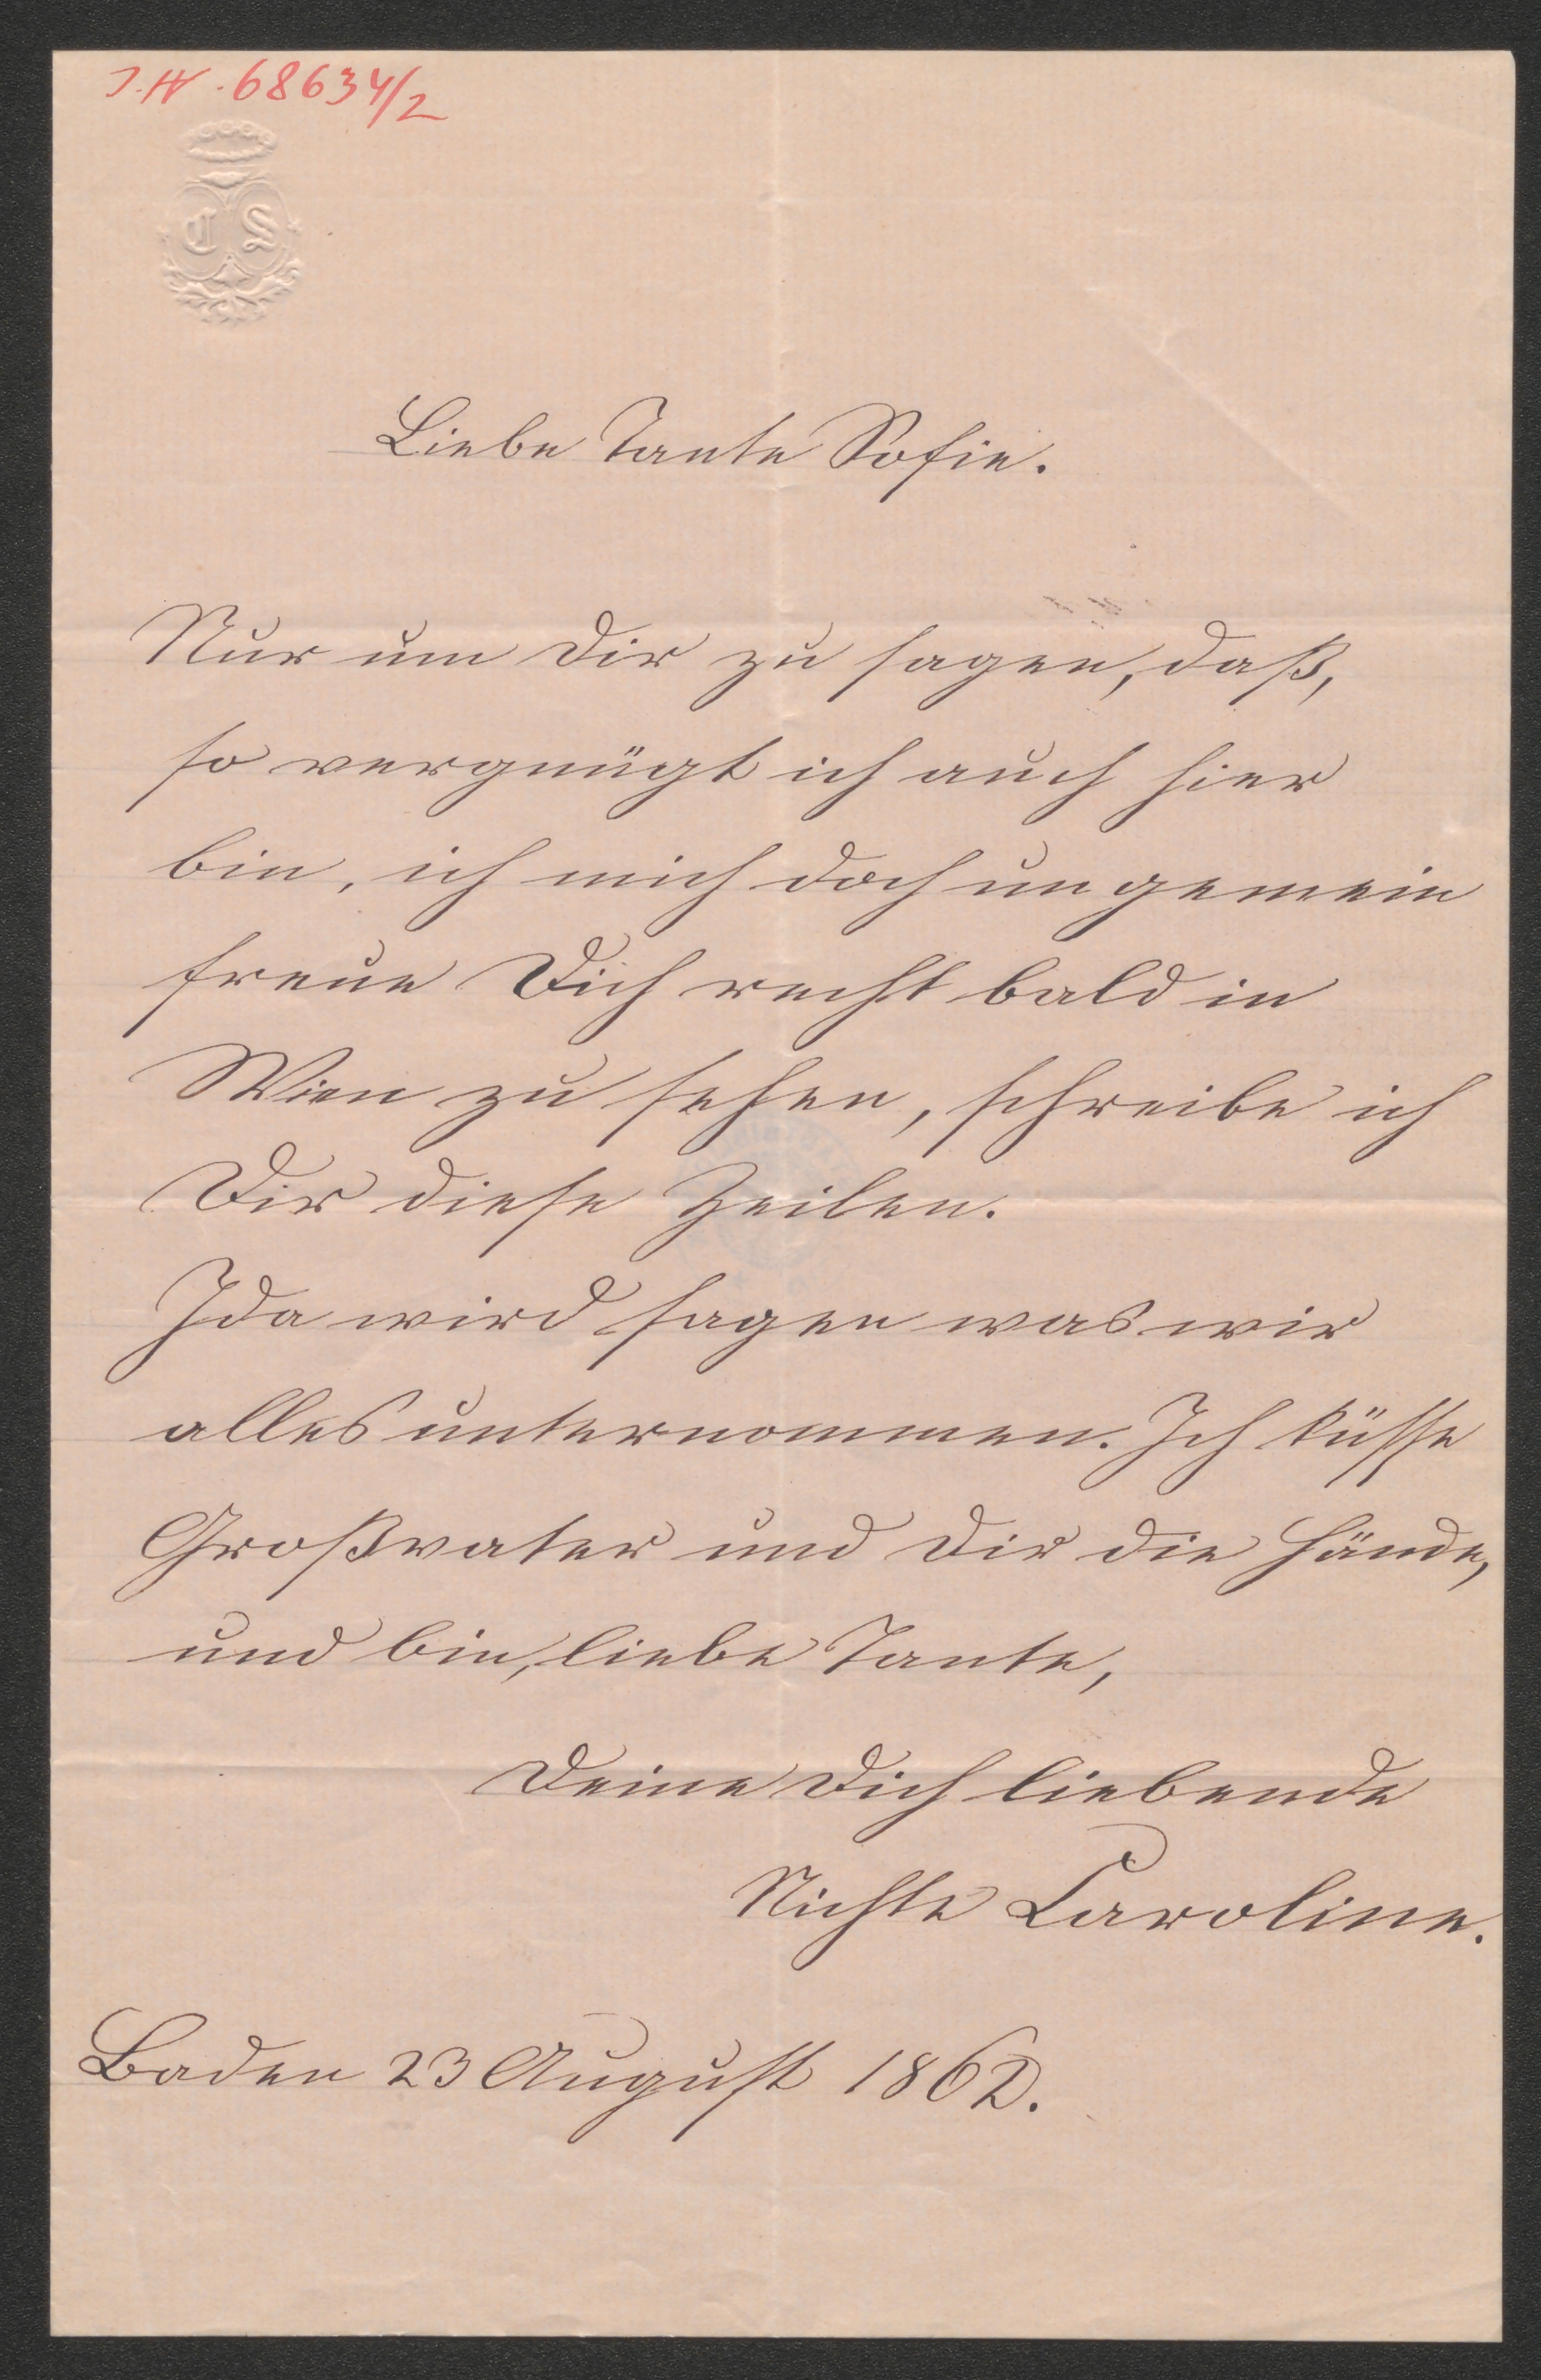 J.N. 68634/2
C S
Liebe Tante Sofie.
Nur um Dir zu sagen, daß,
so vergnügt ich auch hier
bin, ich mich doch ungemein
freue Dich recht bald in
Wien zu sehen, schreibe ich
Dir diese Zeilen.
Ida wird sagen was wir
alles unternommen. Ich küsse
Großvater und Dir die Hände,
und bin, liebe Tante,
Deine Dich liebende
Nichte Caroline.
Baden 23 August 1862.